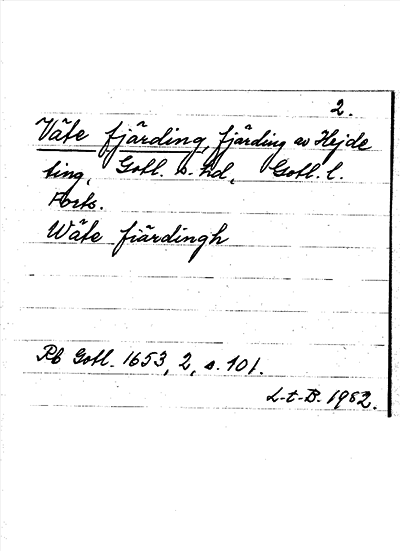 2.
Väte fjärding, fjärding av Hejde
ting, Gotl. s. hd, Gotl. l.
Forts.
Wäte fiärdingh
Rb Gotl. 1653, 2, s. 101.
L-t-B. 1982.